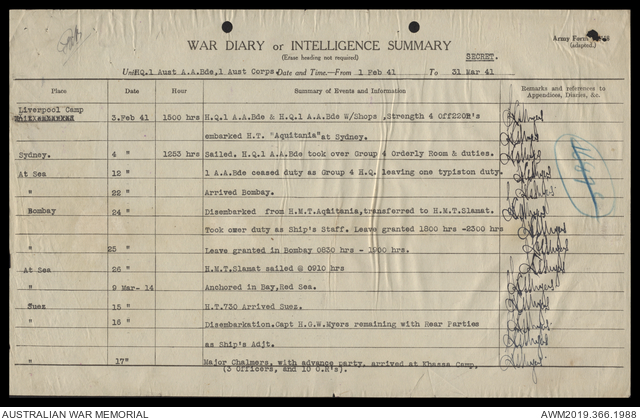 Army Form
WAR DIARY or INTELLIGENCE SUMMARY
(adapted.)
(Erase heading not required)
SECRET.
Unit HQ.1 Aust A.A.Bde,1 Aust Corps. Date and Time.—From 1 Feb 41 To 31 Mar 41
Place Date Hour Summary of Events and Information Remarks and references to Appendices, Diaries, &c.
Liverpool Camp
3.Feb 41 1500 hrs H.Q.1 A.A.Bde & H.Q.1 A.A.Bde W/Shops , Strength 4 Off220R's
embarked H.T. "Aquitania"at Sydney.
Sydney. 4 " 1253 hrs Sailed. H.Q.1 A.A.Bde took over Group 4 Orderly Room & duties.
At Sea 12 " 1 A.A.Bde ceased duty as Group 4 H.Q. leaving one typiston duty.
" 22 " Arrived Bombay.
Bombay 24 " Disembarked from H.M.T.Aquitania,transferred to H.M.T.Slamat.
Took over duty as Ship's Staff. Leave granted 1800 hrs -2300 hrs
" 25 " Leave granted in Bombay 0830 hrs - 1900 hrs.
At Sea 26 " H.M.T.Slamat sailed @ 0910 hrs
" 9 Mar- 14 Anchored in Bay,Red Sea.
Suez 15 " H.T.730 Arrived Suez.
" 16 " Disembarkation.Capt H.G.W.Myers remaining with Rear Parties
as Ship's Adjt.
" 17" Major Chalmers, with advance party, arrived at Khassa Camp,
(3 Officers, and 10 O.R's).
AUSTRALIAN WAR MEMORIAL AWM2019.366.1988